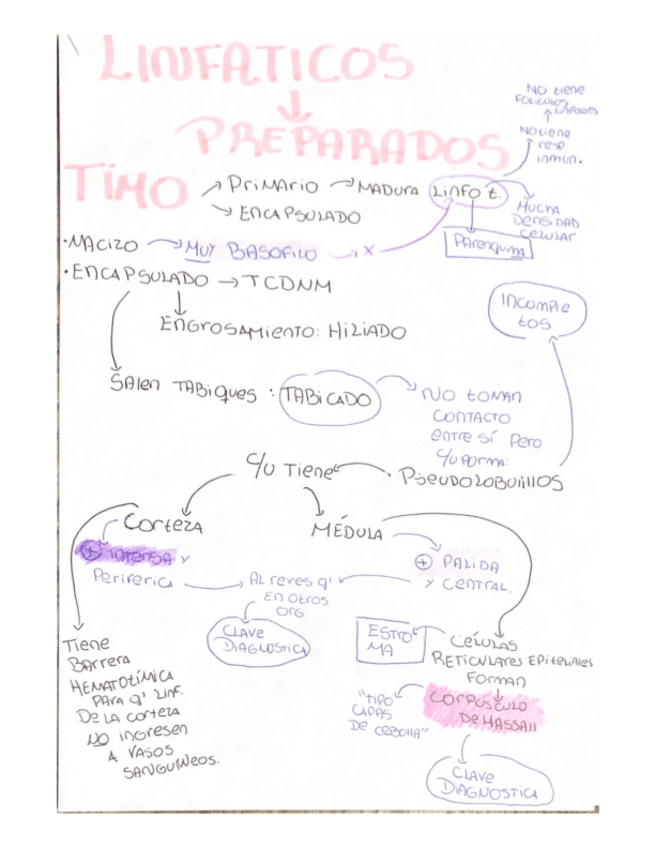 LINFATICOS
PREPARADOS
NO tiene
FOLICULOS
LINFOIDES
NO tiene
resp
inmun.
TIMO
PRIMARIO
MADURA
Linfo t.
ENCAPSULADO
MUCHA
DENSIDAD
CELULAR
Parenquima
•MACIZO
MUY BASOFILO
x
•ENCAPSULADO → TCDNM
ENGROSAMIENTO: HILIADO
INCOMPLE
tOS
SALEN TABIQUES : TABICADO
NO TOMAN
CONTACTO
ENTRE SÍ PERO
C/U FORMA:
• PSEUDOLOBULILLOS
C/U Tiene
CORTEZA
MÉDULA
+ INTENSA Y
PERIFERICA
+ PALIDA
Y CENTRAL.
AL REVES q'
EN OTROS
ORG.
CLAVE
DIAGNOSTICA
Tiene
BARRERA
HEMATOTÍMICA
PARA q' LINF.
DE LA CORTEZA
NO INGRESEN
A VASOS
SANGUINEOS.
ESTRO
MA
CÉLULAS
RETICULARES EPITELIALES
FORMAN
CORPÚSCULO
DE HASSALL
"TIPO
CAPAS
DE CEBOLLA"
CLAVE
DIAGNOSTICA